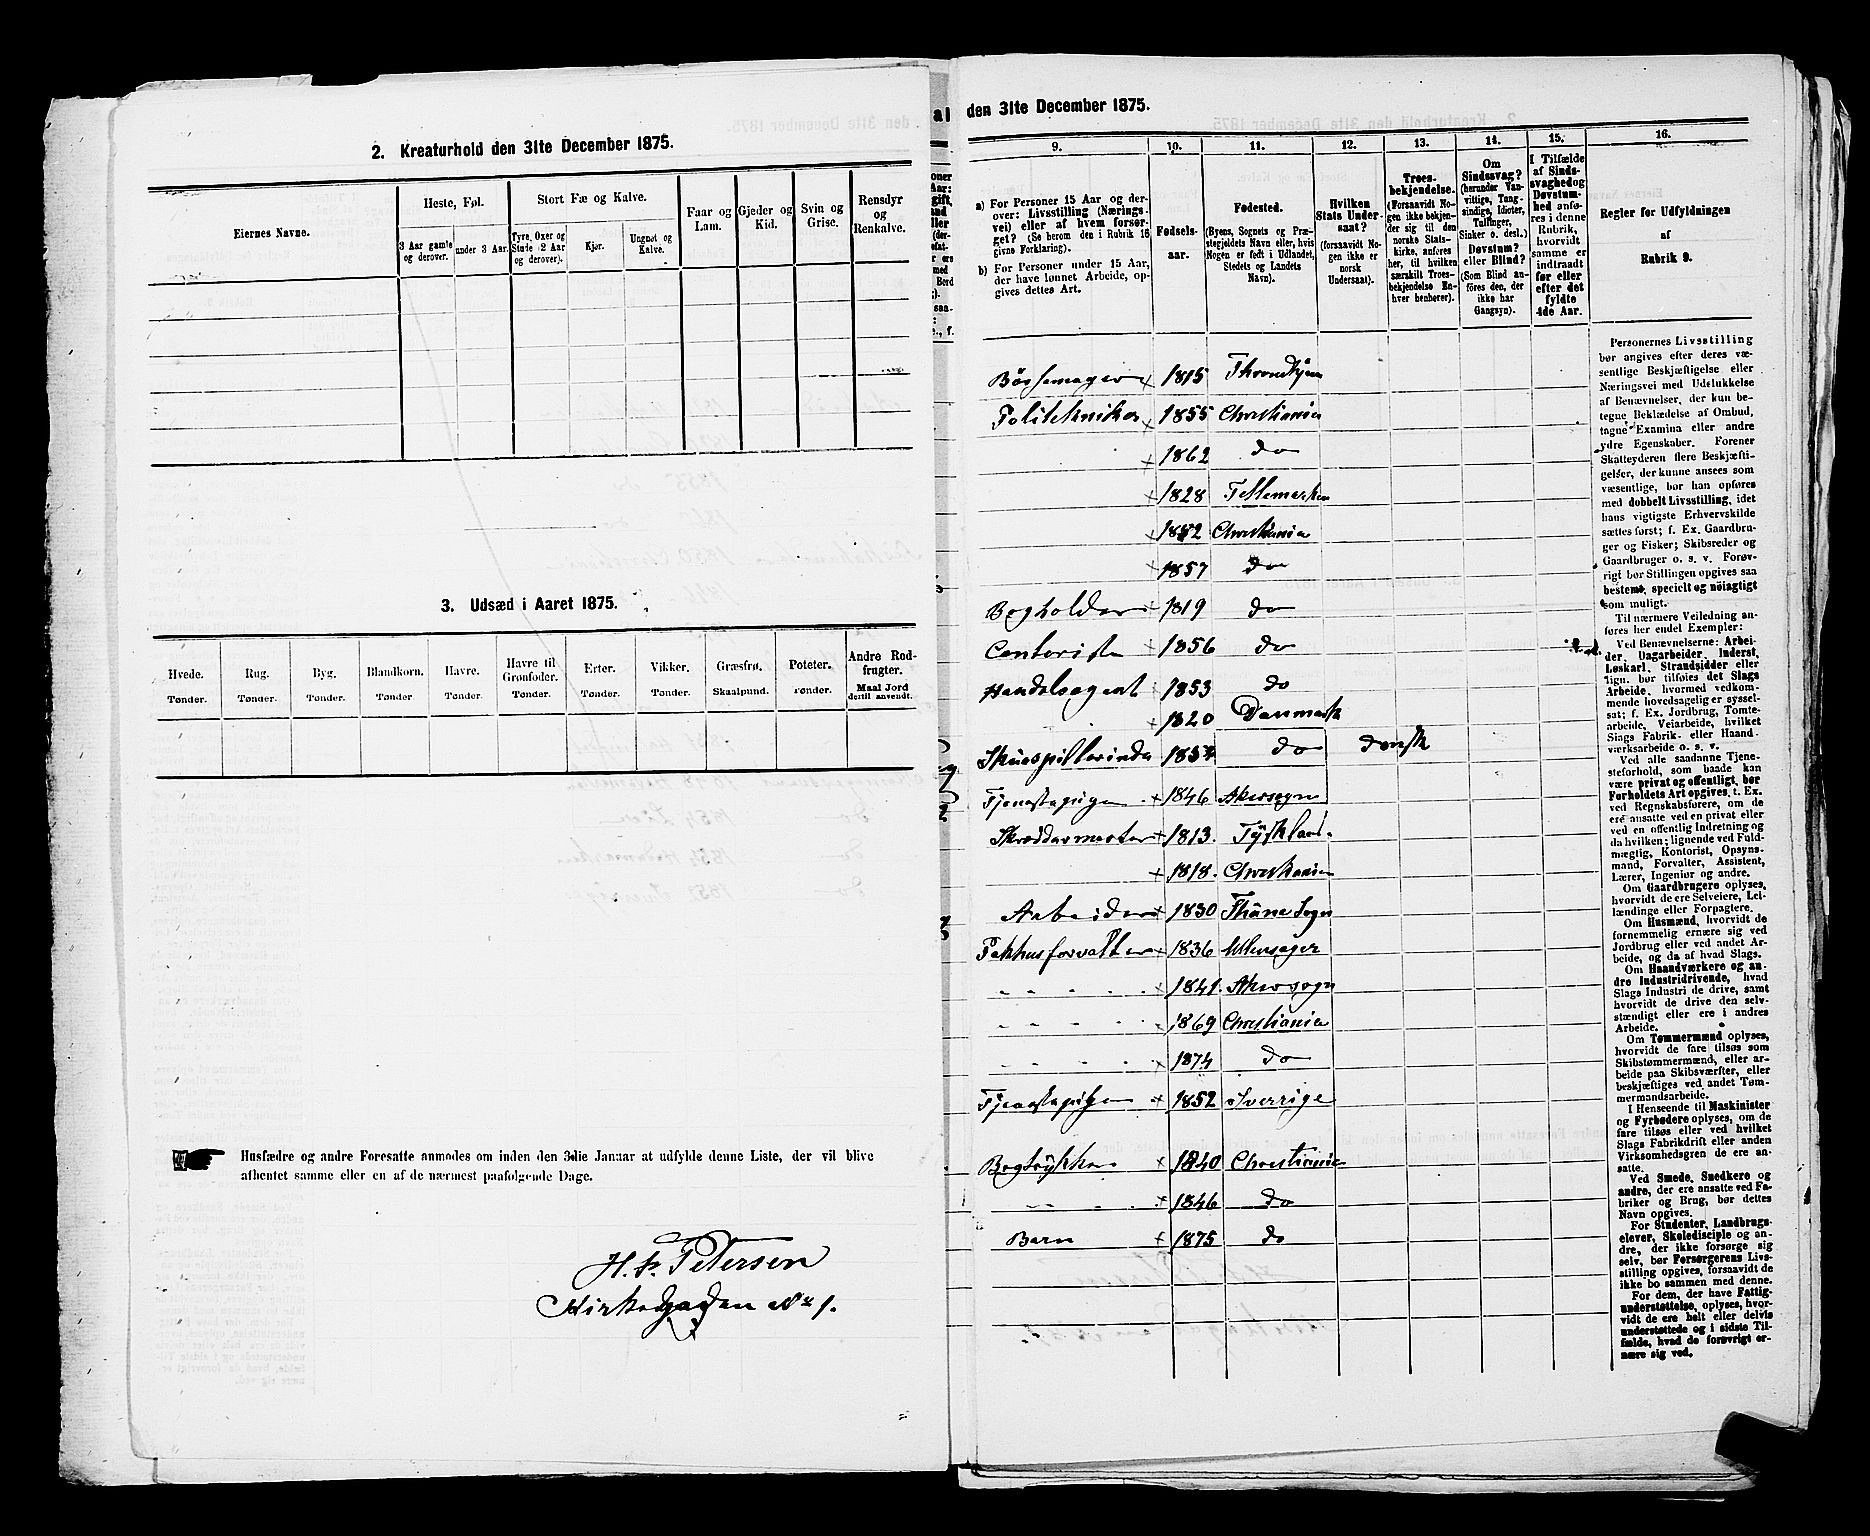 2. Kreaturhold den 31te December 1875.
Eiernes Navne.
Heste, Føl.
Stort Fæ og Kalve.
Faar og Lam.
Gjeder og Kid.
Svin og Grise.
Rensdyr og Renkalve.
3 Aar gamle og derover.
under 3 Aar.
Tyre, Oxer og Stude (2 Aar og derover).
Kjør.
Ungnøt og Kalve.
3. Udsæd i Aaret 1875.
Hvede. Rug. Byg. Blandkorn. Havre. Havre til Grønfoder. Erter. Vikker. Græsfrø. Poteter. Andre Rodfrugter.
Tønder. Tønder. Tønder. Tønder. Tønder. Tønder. Tønder. Tønder. Skaalpund. Tønder. Maal Jord dertil anvendt.
Husfædre og andre Foresatte anmodes om inden den 3die Januar at udfylde denne Liste, der vil blive
afhentet samme eller en af de nærmest paafølgende Dage.
H. P. Petersen
Kirkegaden No 1.
den 31te December 1875.
9. 10. 11. 12. 13. 14. 15. 16.
a) For Personer 15 Aar og derover: Livsstilling (Næringsvei) eller af hvem forsørget? (Se herom den i Rubrik 16 givne Forklaring).
b) For Personer under 15 Aar, der have lønnet Arbeide, opgives dettes Art.
Fødselsaar.
Fødested.
(Byens, Sognets og Præstegjeldets Navn eller, hvis Nogen er født i Udlandet, Stedets og Landets Navn).
Hvilken Stats Undersaat?
(forsaavidt Nogen ikke er norsk Undersaat).
Troesbekjendelse.
(Forsaavidt Nogen ikke bekjender sig til den norske Statskirke, anføres her, til hvilken særskilt Troesbekjendelse Enhver henhører).
Om Sindssvag?
(herunder Vanvittige, Tungsindige, Idioter, Tullinger, Sinker o. desl.)
Døvstum? eller Blind?
(Som Blind anføres den, der ikke har Gangsyn).
I Tilfælde af Sindssvaghed og Døvstumhed anføres i denne Rubrik, hvorvidt samme er indtraadt før eller efter det fyldte 4de Aar.
Regler for Udfyldningen af Rubrik 9.
Bøssemager 1815 Throndhjem
Politekniker 1855 Christiania
1862 do
1828 Tellemarken
1852 Christiania
1857 do
Bogholder 1819 do
Contorist 1856 do
Handelsagent 1853 do
1820 Danmark
Skuespillerinde 1854 do dansk
Tjenestepige 1846 Akersogn
Skreddermester 1813. Tyskland
1818. Christiania
Arbeider 1830 Thune Sogn
Pakhusforvalter 1836 Ullensager
" " " " 1841. Akersogn
" " " " 1869 Christiania
" " " " 1874 do
Tjenestepige 1852 Sverrige
Bogtrykker 1840 Christiania
" " " 1846 do
Barn 1875 do
Personernes Livsstilling
bør angives efter deres væsentlige
Beskjæftigelse eller
Næringsvei med Udelukkelse
af Benævnelser, der kun betegne
Beklædelse af Ombud,
tagne Examina eller andre
ydre Egenskaber. Forener
Skatteyderen flere Beskjæftigelser,
der kunne ansees som
væsentlige, bør han opføres
med dobbelt Livsstilling, idet
hans vigtigste Erhvervskilde
sættes først; f. Ex. Gaardbruger
og Fisker; Skibsreder og
Gaardbruger o. s. v. Forøvrigt
bør Stillingen opgives saa
bestemt, specielt og nøiagtigt
som muligt.
Til nærmere Veiledning anføres
her endel Exempler:
Ved Benævnelserne: Arbeider,
Dagarbeider, Inderst,
Løskarl, Strandsidder eller
lign. bør tilføies det Slags
Arbeide, hvormed vedkommende
hovedsagelig er sysselsat;
f. Ex. Jordbrug, Tomtearbeide,
Veiarbeide, hvilket
Slags Fabrik- eller Haandværksarbeide
o. s. v.
Ved alle saadanne Tjenesteforhold,
som baade kan
være privat og offentligt, bør
Forholdets Art opgives, t. Ex.
ved Regnskabsførere, om de
ere ansatte ved en privat eller
ved en offentlig Indretning og
da hvilken; lignende ved Fuldmægtig,
Kontorist, Opsynsmand,
Forvalter, Assistent,
Lærer, Ingeniør og andre.
Om Gaardbrugere oplyses,
hvorvidt de ere Selveiere, Leilændinge
eller Forpagtere.
Om Husmænd, hvorvidt de
fornemmelig ernære sig ved
Jordbrug eller ved andet Arbeide,
og da af hvad Slags.
Om Haandværkere og andre
Industridrivende, hvad
Slags Industri de drive, samt
hvorvidt de drive den selvstændigt
eller ere i andres
Arbeide.
Om Tømmermænd oplyses,
hvorvidt de fare tilsøs som
Skibstømmermænd, eller arbeide
paa Skibsværfter, eller
beskjæftiges ved andet Tømmermandsarbeide.
I Henseende til Maskinister
og Fyrbødere oplyses, om de
fare tilsøs eller ved hvilket
Slags Fabrikdrift eller anden
Virksomhedsgren de ere ansatte.
Ved Smede, Snedkere og
andre, der ere ansatte ved Fabriker
og Brug, bør dettes
Navn opgives.
For Studenter, Landbrugselever,
Skoledisciple og andre,
der ikke forsørge sig
selv, bør Forsørgerens Livsstilling
opgives, forsaavidt de
ikke bo sammen med denne.
For dem, der have Fattigunderstøttelse,
oplyses, hvorvidt
de ere helt eller delvis
understøttede og i sidste Tilfælde,
hvad de forøvrigt ernære
sig ved.